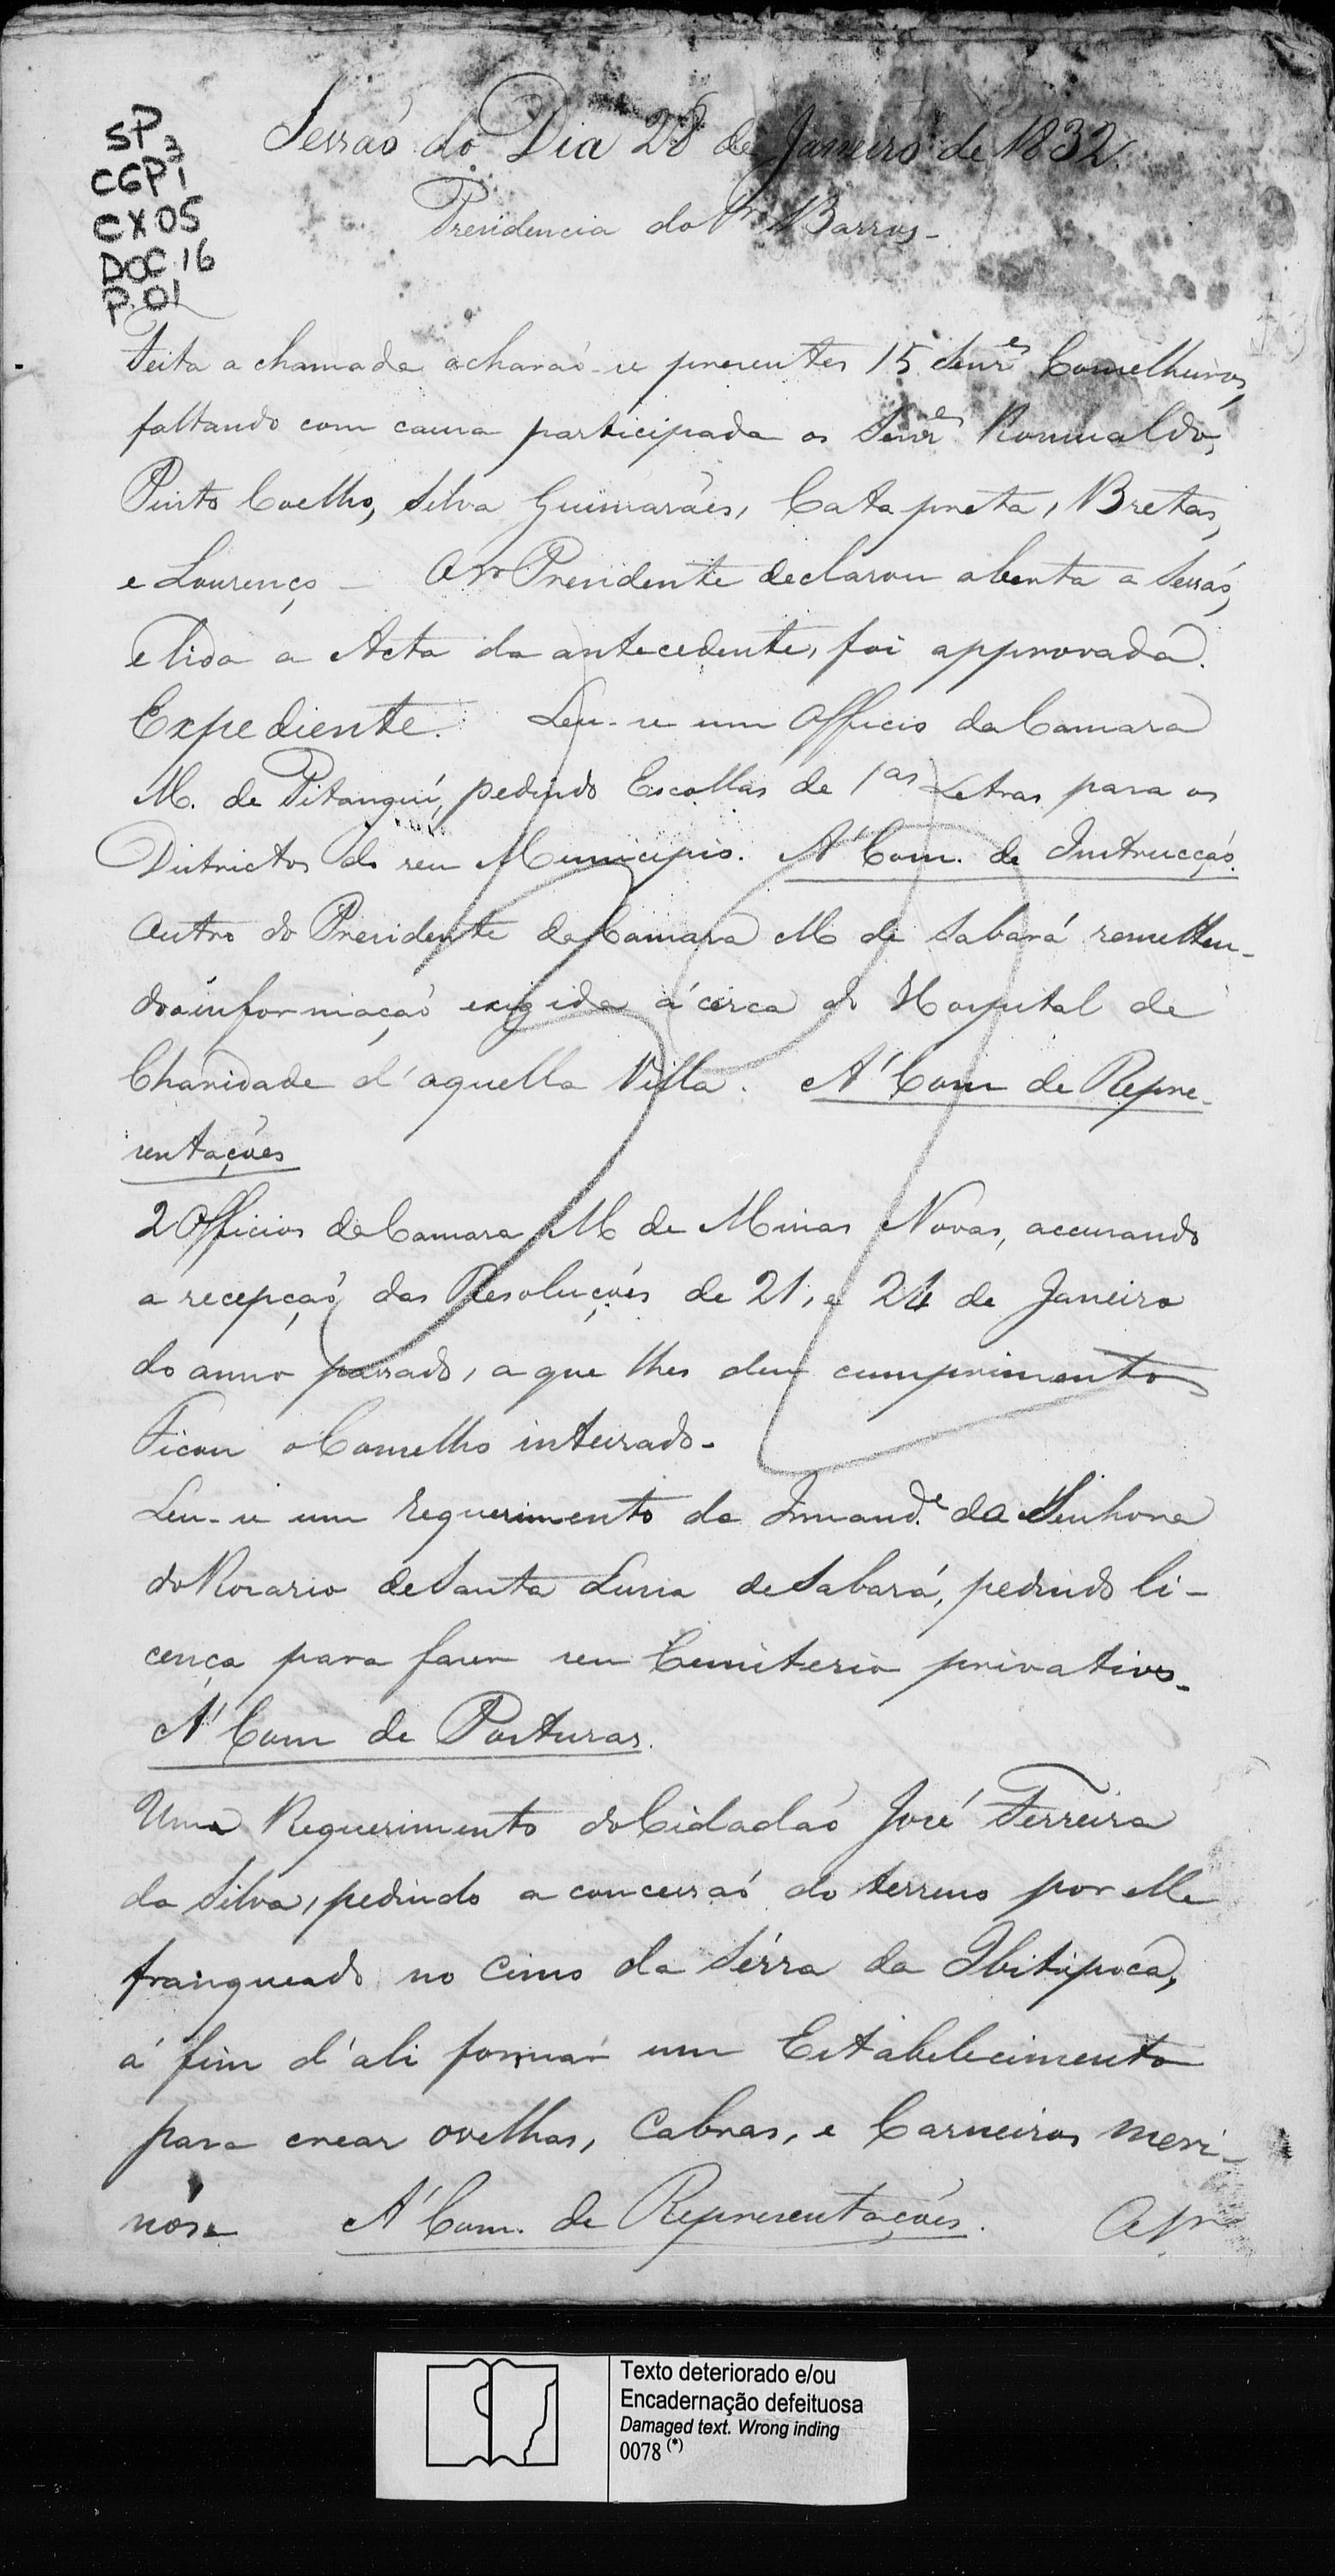 SP 3
CGP 1
CX 05
DOC. 16
P. 01
Sessaõ do Dia 28 de Janeiro de 1832
Presidencia do Sr Barros_
Feita a chamada acharaõ-se presentes 15 Senres Conselheiros,
faltando com causa participada os Senres Romualdo,
Pinto Coelho, Silva Guimarães, Cata preta, Bretas,
e Lourenço _ O Sr Presidente declarou aberta a Sessaõ,
e lida a Acta da antecedente, foi approvada.
Expediente. Leu-se um Officio da Camara
M. de Pitanguí, pedindo Escollas de 1as Letras para os
Districtos do seu Municipio. A' Com. de Instrucçaõ.
Outro do Presidente da Camara M de Sabará remetten-
do a informaçaõ exigida á cerca do Hospital de
Charidade d'aquella Villa. A' Com de Repre-
sentações
2 Officios da Camara M de Minas Novas, accusando
a recepçaõ das Resoluções de 21, e 24 de Janeiro
do anno passado, a que lhes deu cumprimento
Ficou o Conselho inteirado-
Leu-se um requerimento da Irmande da Senhora
do Rosario de Santa Lusia de Sabará, pedindo li-
cença para faser seu Cemiterio privativo-
A' Com de Posturas.
Um Requerimento do Cidadaõ José Ferreira
da Silva, pedindo a concessaõ do terreno por elle
franqueado no cimo da Sérra da Ibitipóca,
á fim d'ali formár um Estabelecimento
para crear ovelhas, Cabras, e Carneiros meri-
nós. A' Com. de Representações. O Sr
Texto deteriorado e/ou
Encadernação defeituosa
Damaged text. Wrong inding
0078 (*)